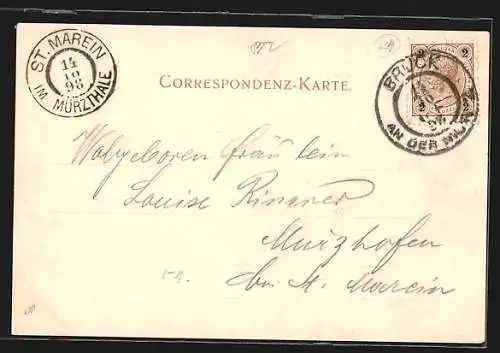 ST. MAREIN
14
10
98
IM MÜRZTHALE
BRUCK
AN DER MUR
2 2
2 2
CORRESPONDENZ-KARTE.
Wolgeboren Fräulein
Louise
Murzhofen
bei St. Marein